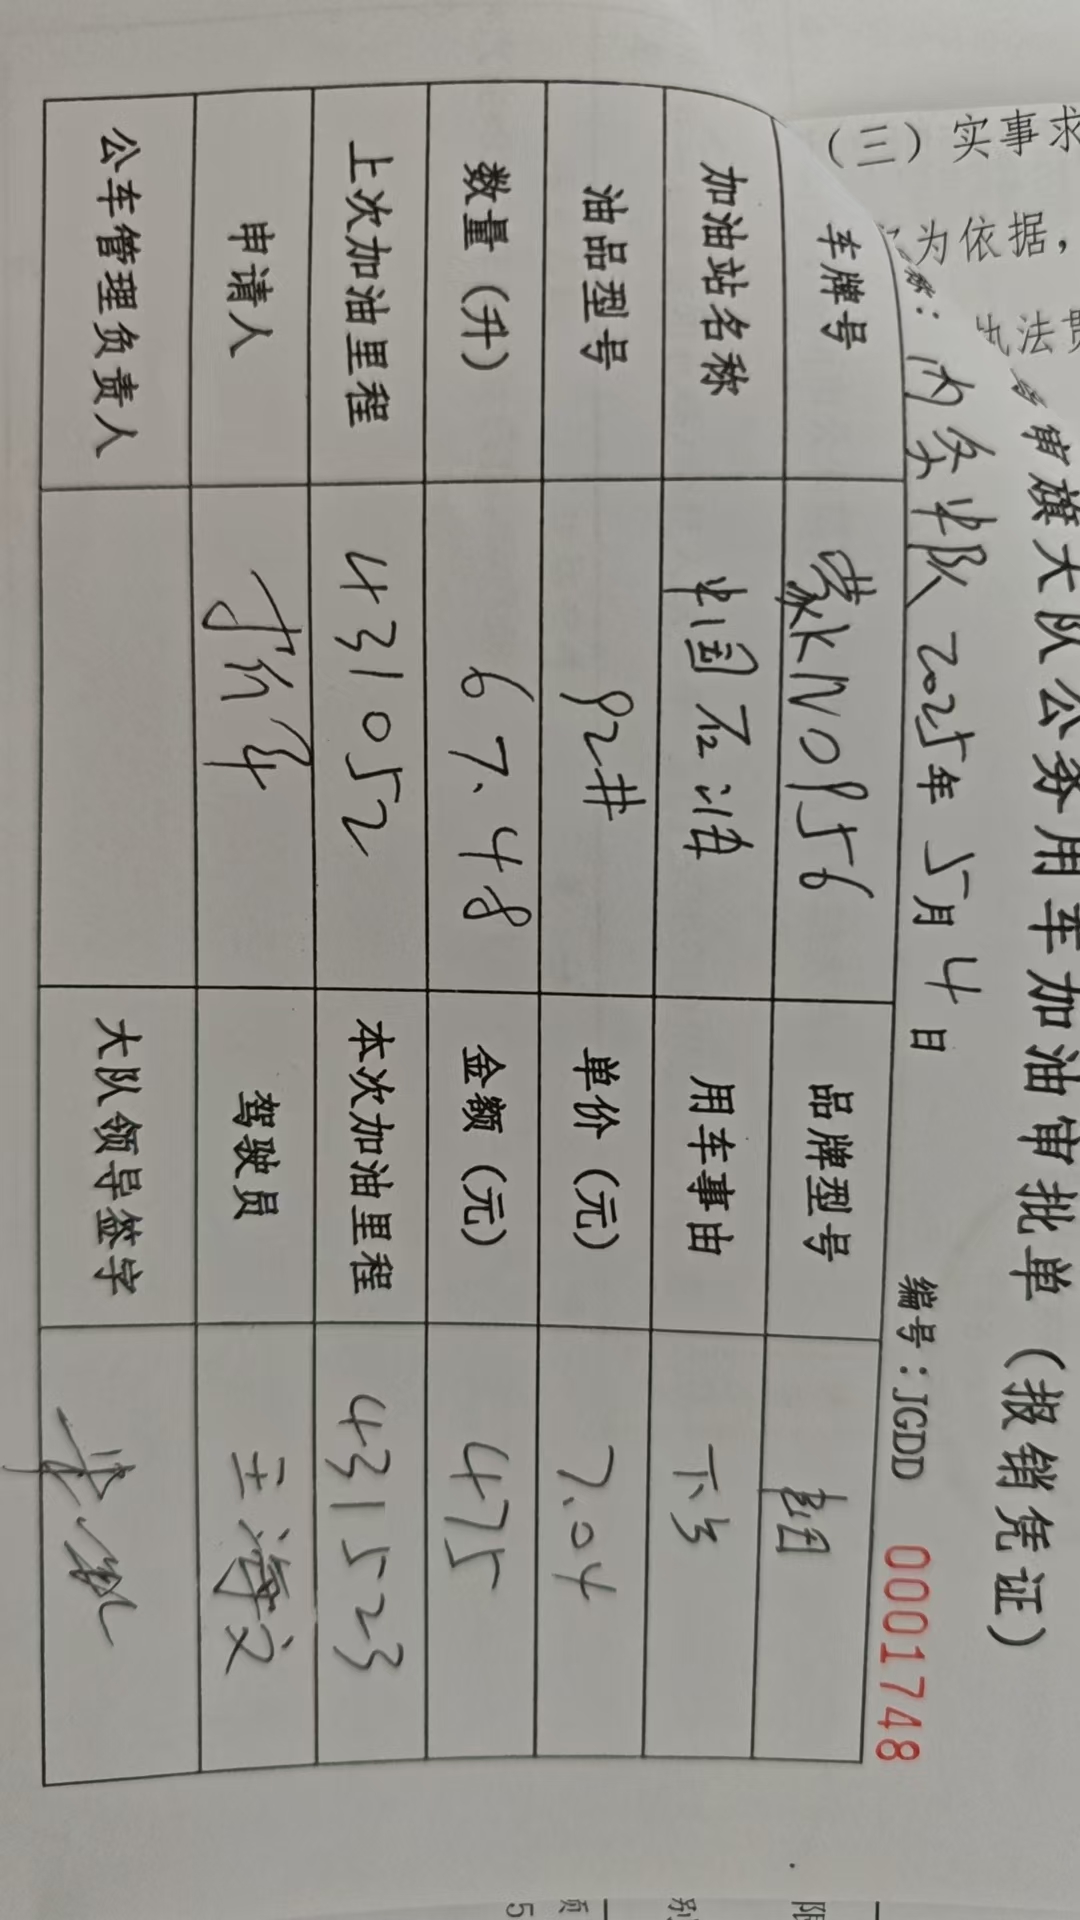 （三）实事求
为依据，
执法贯
审旗大队公务用车加油审批单（报销凭证）
内务中队 2025年 5月 4日 编号：JGDD 0001748
车牌号 蒙KN0956 品牌型号
加油站名称 中国石油 用车事由 下乡
油品型号 92# 单价（元） 7.04
数量（升） 67.48 金额（元） 475
上次加油里程 431052 本次加油里程 431523
申请人 驾驶员 王海文
公车管理负责人 大队领导签字
限
别
页
5